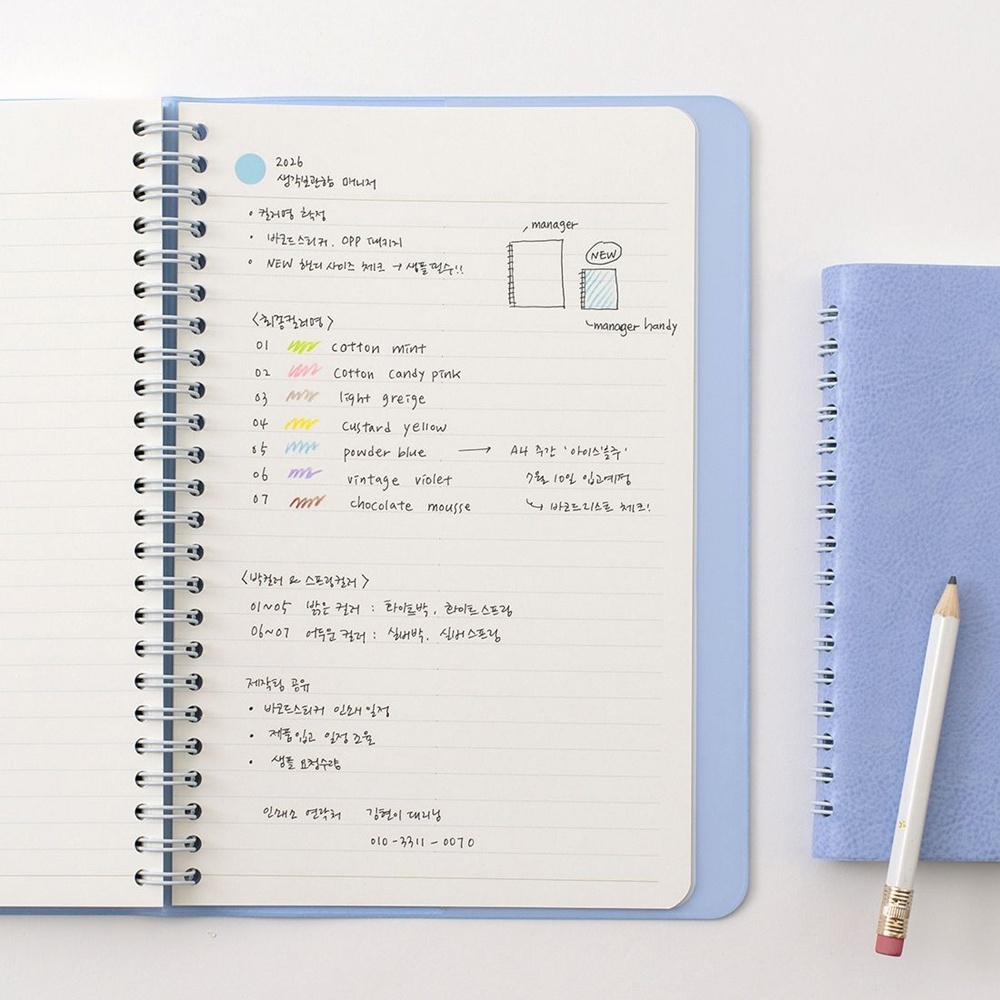 2026
생각보관함 매니저
• 컬러명 확정
• 바코드스티커, OPP 패키지
• NEW 핸디 사이즈 체크 → 샘플필수!!
manager
NEW
manager handy
〈최종컬러명〉
01 cotton mint
02 cotton candy pink
03 light greige
04 custard yellow
05 powder blue → A4 주간 '아이스블루'
06 vintage violet 7월 10일 입고예정
07 chocolate mousse ↳ 바코드리스트 체크!
〈박컬러 & 스프링컬러〉
01~05 밝은 컬러 : 화이트박, 화이트스프링
06~07 어두운 컬러 : 실버박, 실버스프링
제작팀 공유
• 바코드스티커 인쇄일정
• 제품입고 일정 조율
• 샘플 요청수량
인쇄소 연락처 김현이 대리님
010-3311-0070